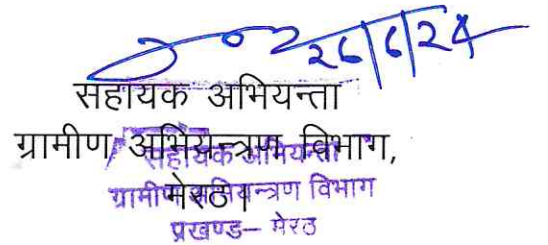 26/6/24
सहायक अभियन्ता
ग्रामीण अभियन्त्रण विभाग,
मेरठ।
सहायक अभियन्ता
ग्रामीण अभियन्त्रण विभाग
प्रखण्ड– मेरठ